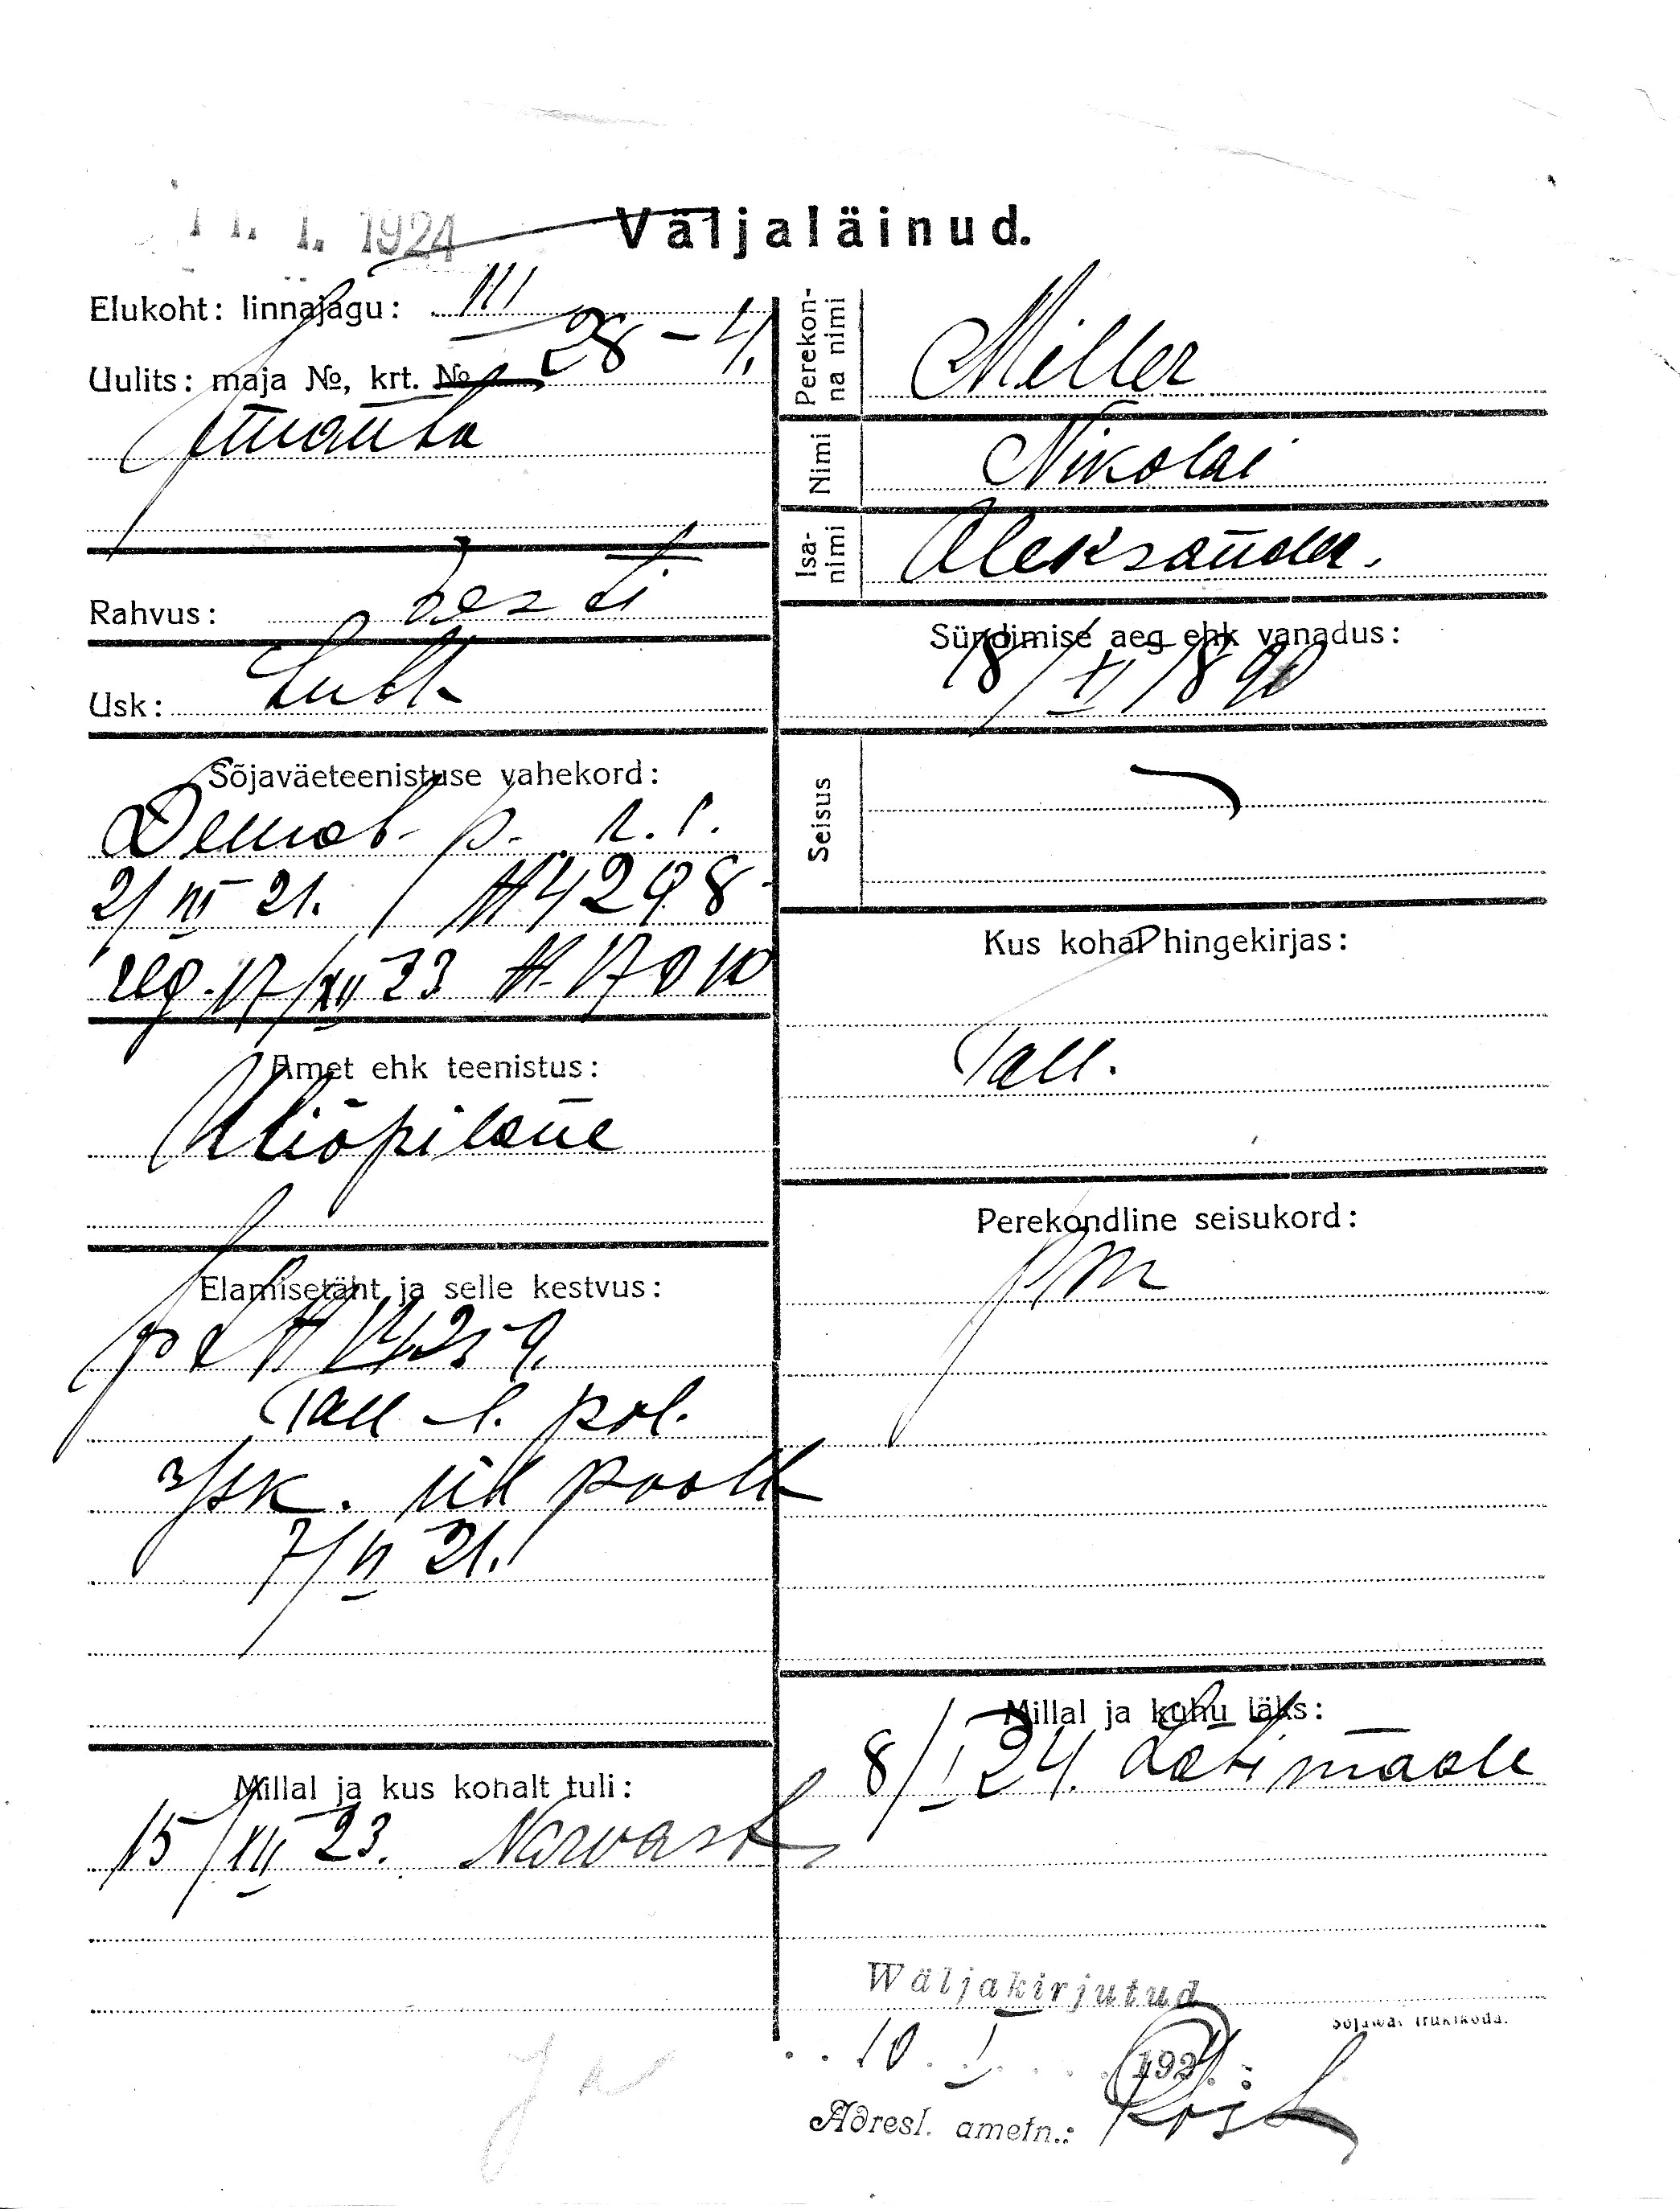 11. I. 1924
Väljaläinud.
Elukoht: linnajagu: III
Uulits: maja №, krt. № 28 – 4.
Rahvus: Eesti
Usk: Luth
Sõjaväeteenistuse vahekord:
Demob. p. r. r.
21 III 21. / № 4298
reg. 17/XII 23 № 17010
Amet ehk teenistus:
Üliõpilane
Elamisetäht ja selle kestvus:
Tall l. pol.
3/jsk. poolt
7/VI 21.
Millal ja kus kohalt tuli:
15/XII 23. Narvast
Perekonna nimi Miller
Nimi Nikolai
Isanimi Aleksander.
Sündimise aeg ehk vanadus:
18/XI 1890
Seisus
Kus kohal hingekirjas:
Tall.
Perekondline seisukord:
Millal ja kuhu läks:
8/I 24. Lätimaale
Wäljakirjutud
10. I. 1924.
Sõjawäe trükikoda.
Adresl. ametn.: